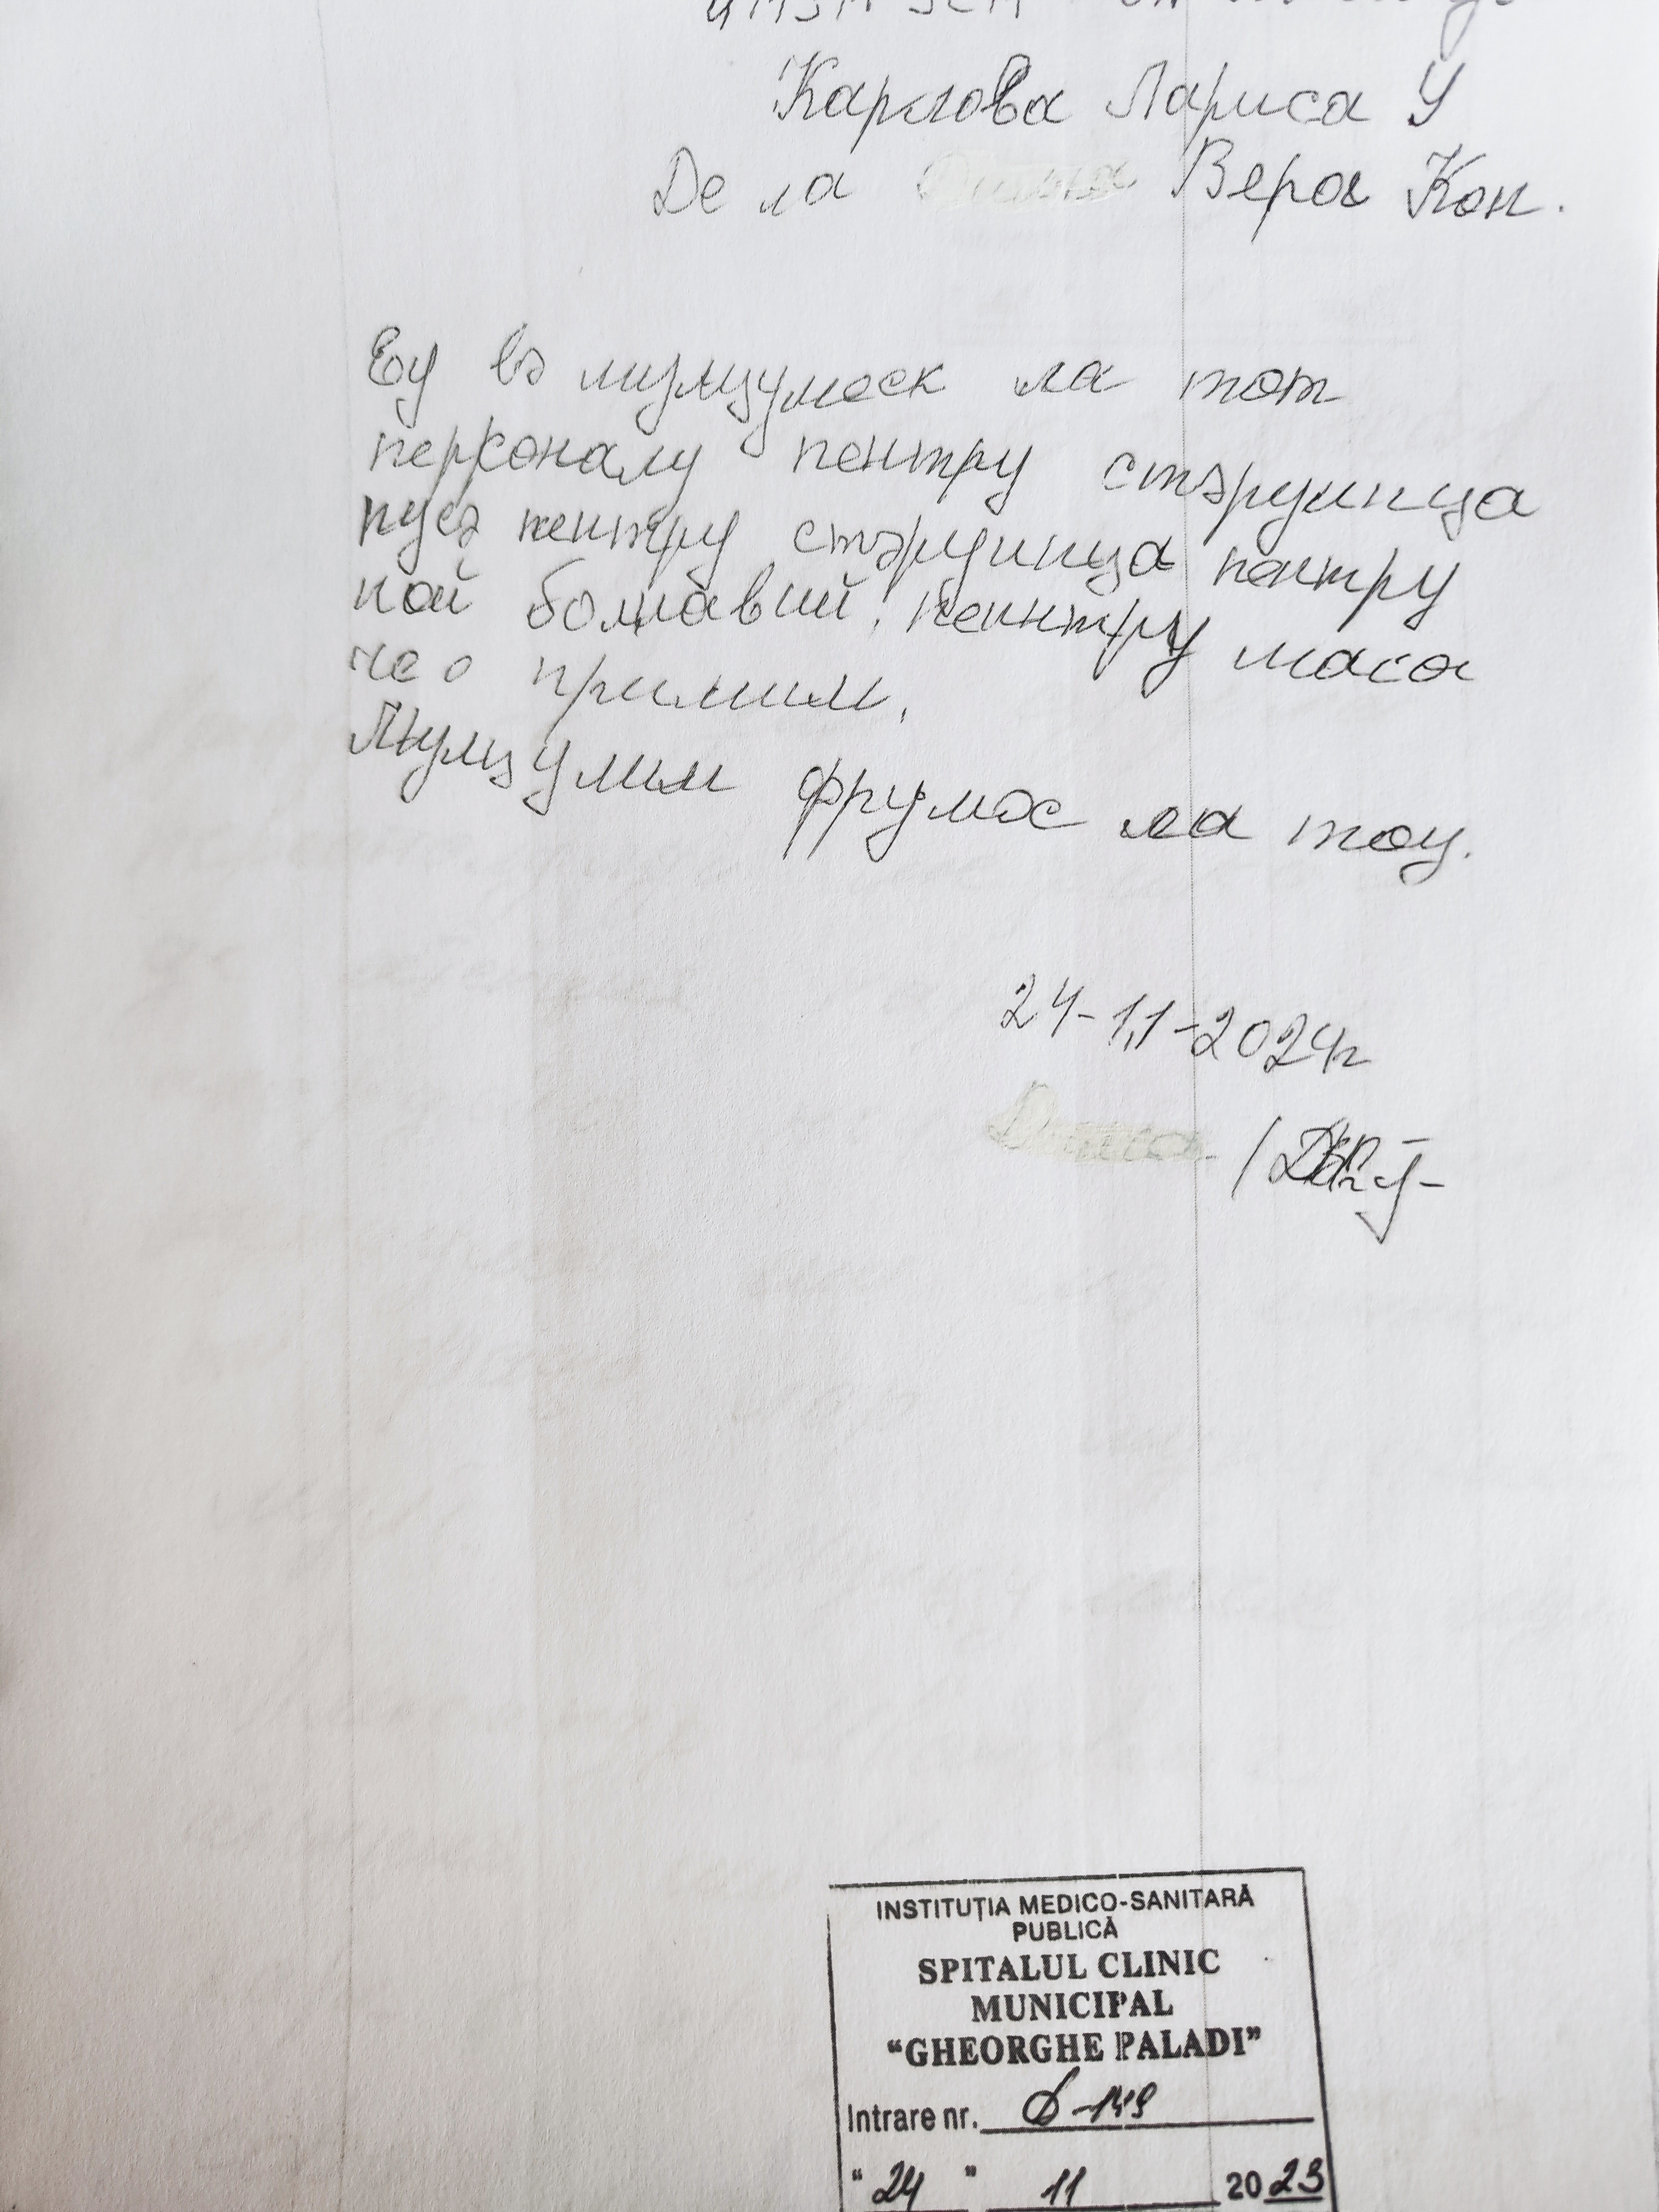 Карлова Лариса У
Де ла Вера Кон.
Еу вэ мулцумеск ла тот
персоналу пентру стэруинца
пусэ пентру стэруинца пентру
ной болнавий, пентру маса
че о примим.
Мулцумим фрумос ла тоц.
24-11-2024г
INSTITUȚIA MEDICO-SANITARĂ
PUBLICĂ
SPITALUL CLINIC
MUNICIPAL
“GHEORGHE PALADI”
Intrare nr. -149
“ 24 ” 11 2023